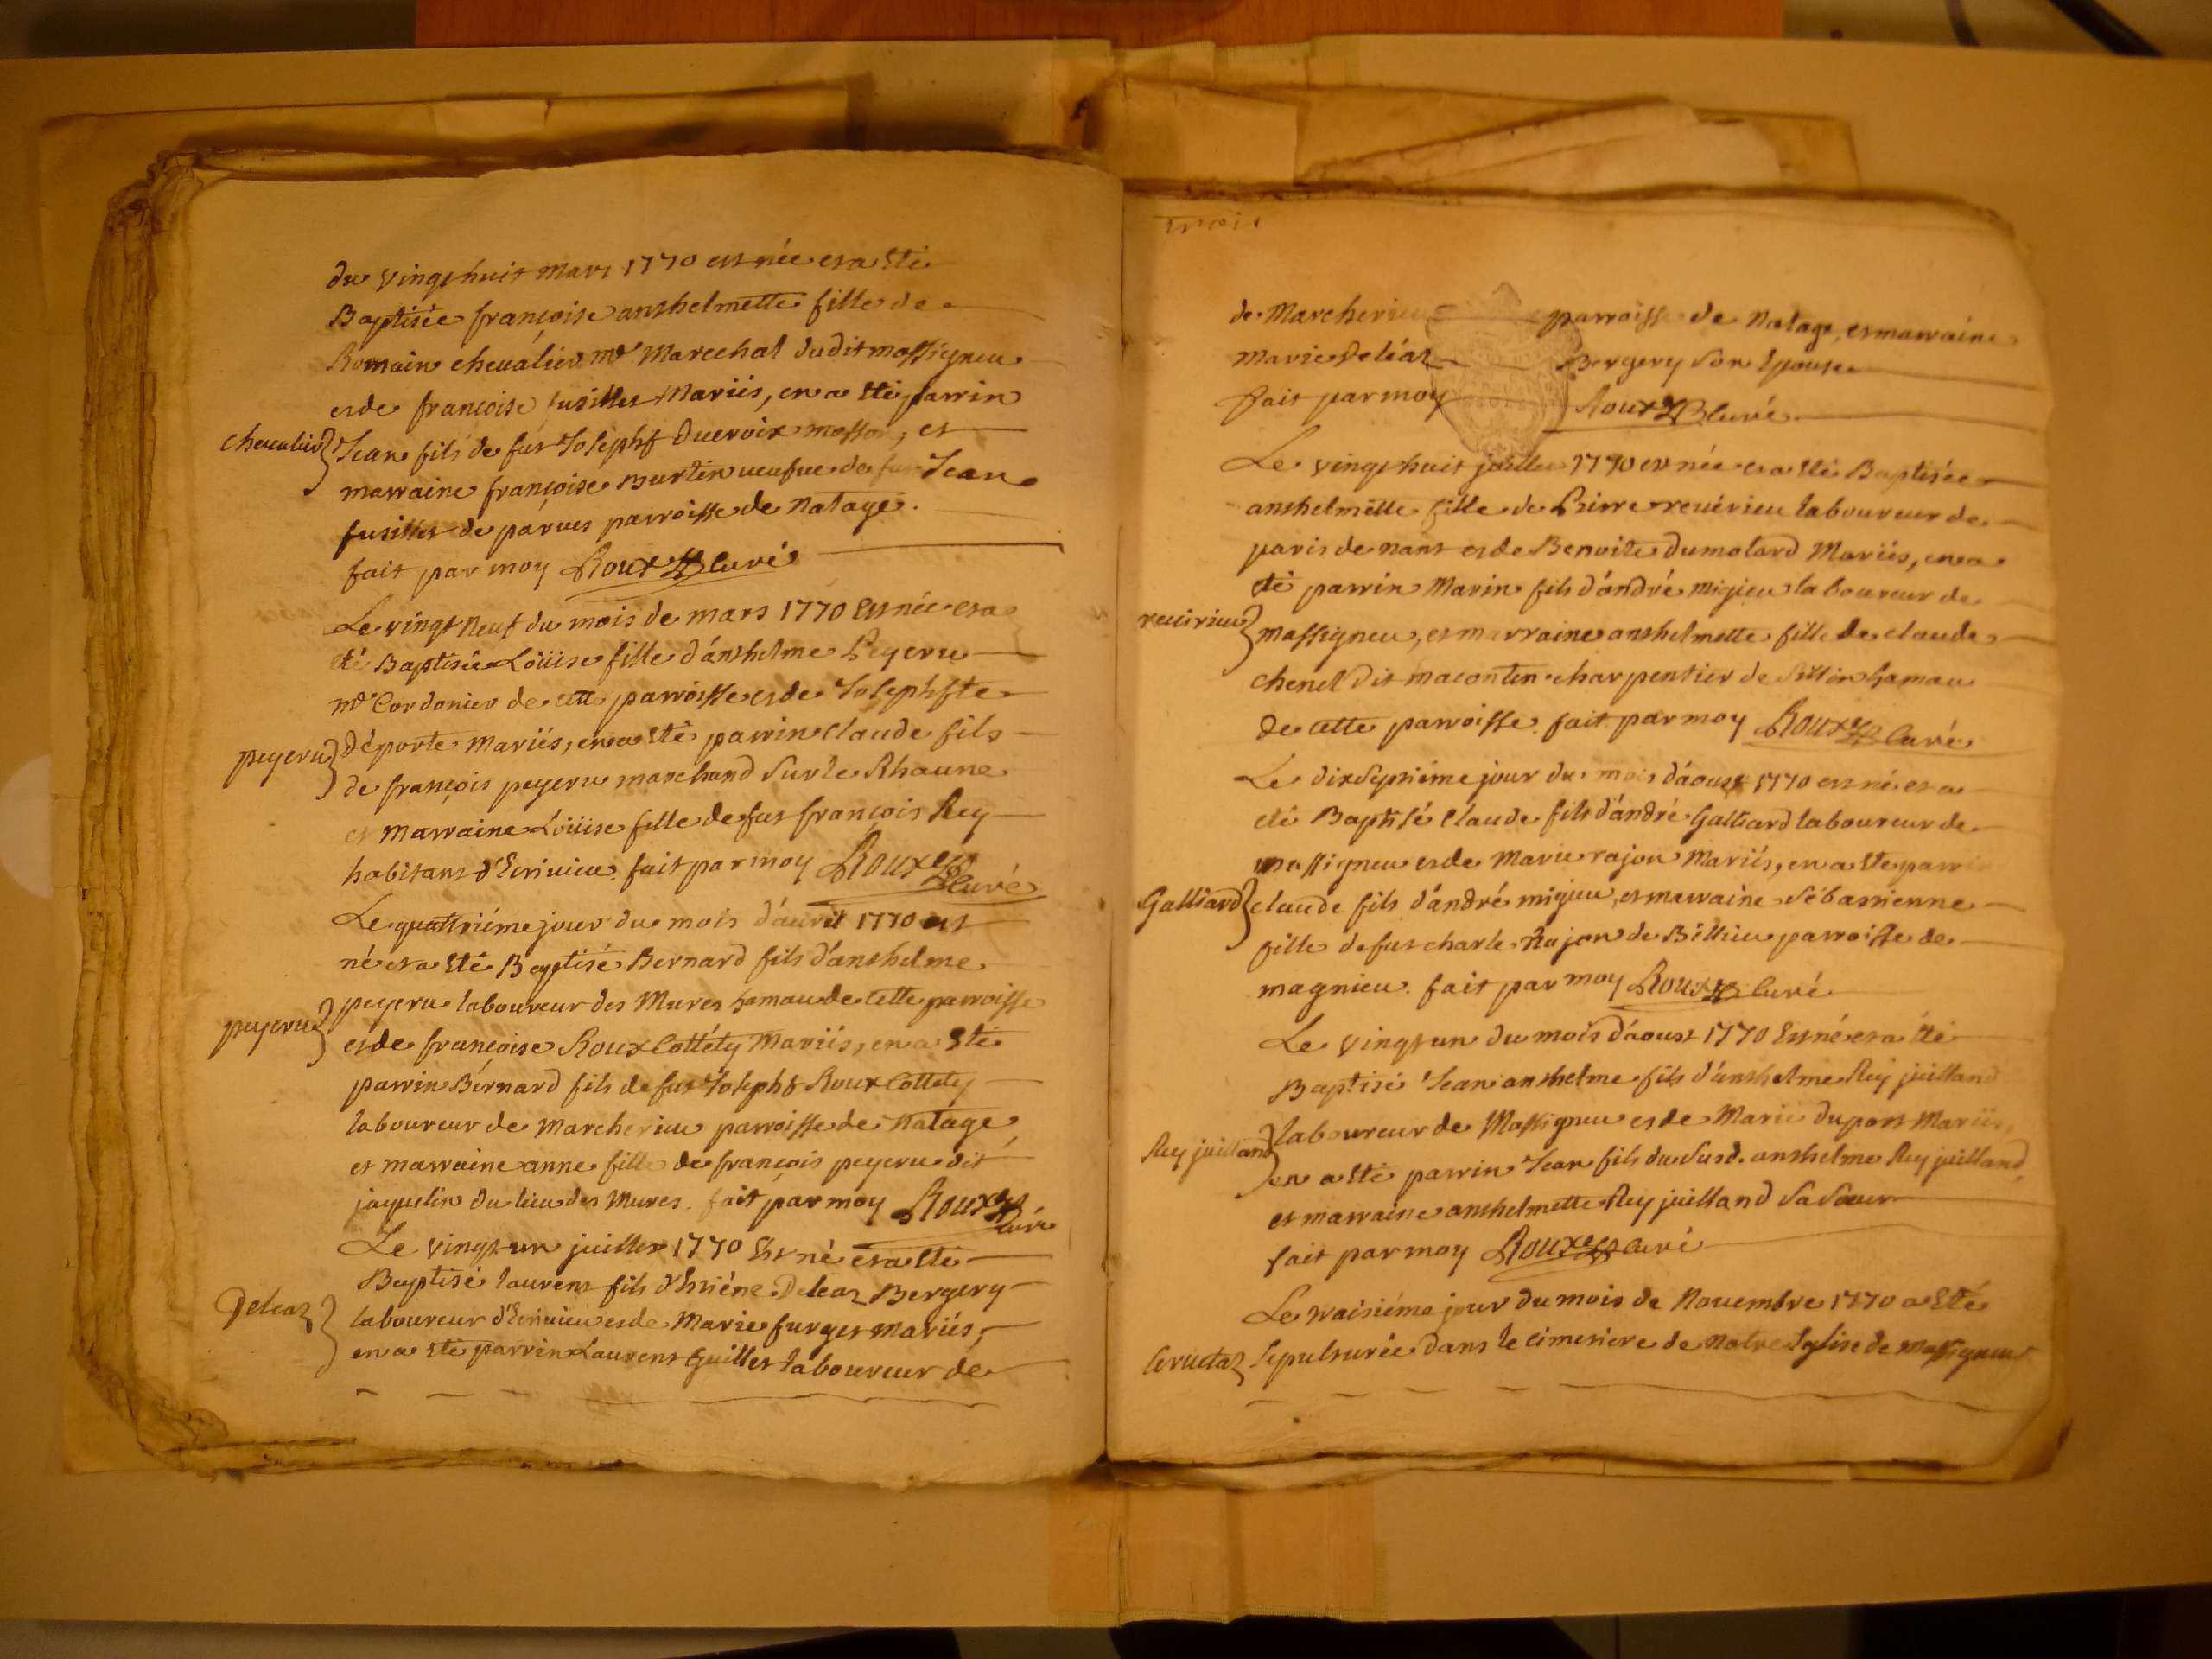 du vingt huit mars 1770 est née et a été
Baptisée françoise anthelmette fille de
Romain chevalier md Marechal dudit massigneu
et de françoise fusillet Mariés, en a été parrin
chevalier
Jean fils de fut Joseph ducroix masson, et
marraine françoise Burtin veufve de fut Jean
fusillet de parves parroisse de Natage.
fait par moy Roux Curé
Le vingt neuf du mois de mars 1770 Est née et a
été Baptisée Loüise fille d'anthelme Peyeru
md Cordonier de cette parroisse et de Josephte
peyeru
déporte mariés, en a été parrin Claude fils
de françois peyeru marchand sur le Rhaune
et marraine Loüise fille de fut françois Rey
habitant d'Ecrivieu. fait par moy Roux Curé
Le quattriéme jour du mois d'avril 1770 est
né et a été Baptisé Bernard fils d'anthelme
peyeru
peyeru laboureur des Mures hamau de cette parroisse
et de françoise Roux Cottéty Mariés, en a été
parrin Bérnard fils de fut Joseph Roux Cottety
laboureur de Marcherieu parroisse de Natage,
et marraine anne fille de françois peyeru dit
jaquelin du lieu des Mures. fait par moy Roux Curé
Le vingt un juillet 1770 Est né et a été
Baptisé laurent fils d'Etiéne Deleaz Bergery
Deleaz
laboureur d'Ecrivieu et de Marie furget mariés,
en a été parrin Laurent Guillet laboureur de
trois
de Marcherieu parroisse de Natage, et marraine
marie Deléaz Bergery son Epouse
fait par moy Roux Curé
Le vingt huit juillet 1770 est née et a été Baptisée
anthelmette fille de Pierre reverieu laboureur de
paris de nant et de Benoite dumolard Mariés, en a
été parrin Marin fils d'andré migieu laboureur de
reverieu
massigneu, et marraine anthelmette fille de claude
chenel dit maconten charpentier de Sillin hamau
de cette parroisse. fait par moy Roux Curé
Le dix septiéme jour du mois d'aoust 1770 est né et a
été Baptisé Claude fils d'andré Galliard laboureur de
massigneu et de Marie rajon Mariés, en a été parrin
Galliard
claude fils d'andré migieu, et marraine sébastienne
fille de fut charle Rajon de Billieu parroisse de
magnieu. fait par moy Roux Curé
Le vingt un du mois d'aoust 1770 Est né et a été
Baptisé Jean anthelme fils d'anthelme Rey juilland
Rey juilland
laboureur de Massigneu et de Marie duport Mariés,
en a été parrin Jean fils du susd. anthelme Rey juilland,
et marraine anthelmette Rey juilland sa sœur
fait par moy Roux Curé
Le traisiéme jour du mois de Novembre 1770 a été
Cerutaz
sepulturée dans le cimetiere de Notre Eglise de massigneu